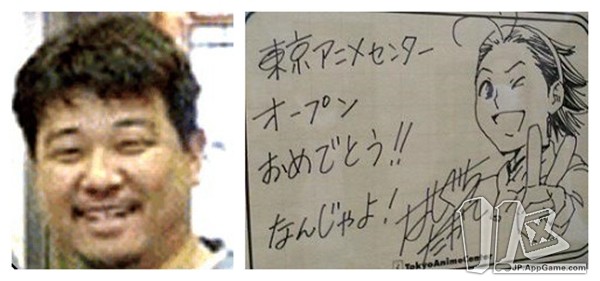 東京アニメセンター
オープン
おめでとう!!
なんじゃよ!
TokyoAnimeCenter
JP.AppGame.com